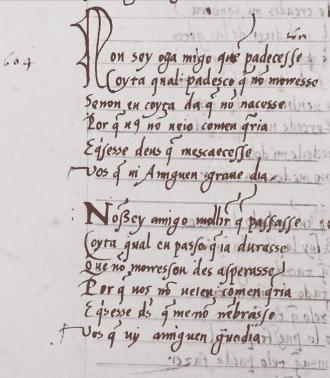 604
Non sey oga migo que padecesse
Coyta qual padesco q̄ nō moresse
Senon eu coyta da q̄ nō nacesse
Por q̄ nō veio comeu q̄ria
E q̄sesse deus q̄ mescaecesse
Vos q̄ ui Amiguen graue dia
Nō ssey amigo molhr̄ q̄ passasse
Coyta qual eu passo q̄ ia durasse
Que nō moresse ou desasperasse
Por q̄ uos nō ueieu comeu q̄ria
E q̄sesse ds̄ q̄ me nō nēbrasse
Vos q̄ uy amiguen ḡue dia